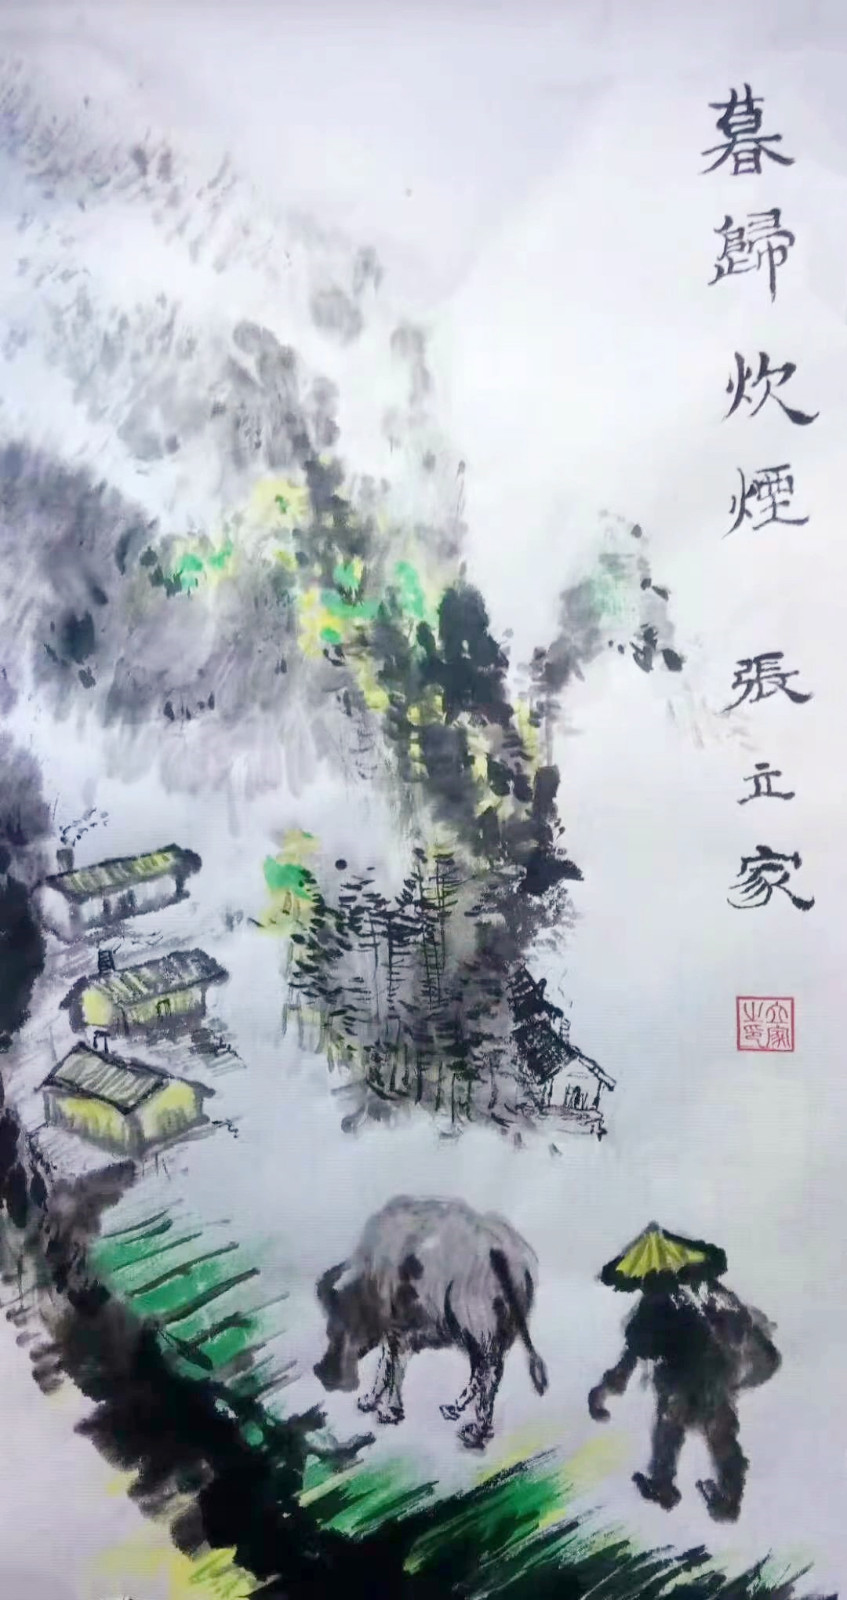 暮歸炊煙
張立家
立家之印